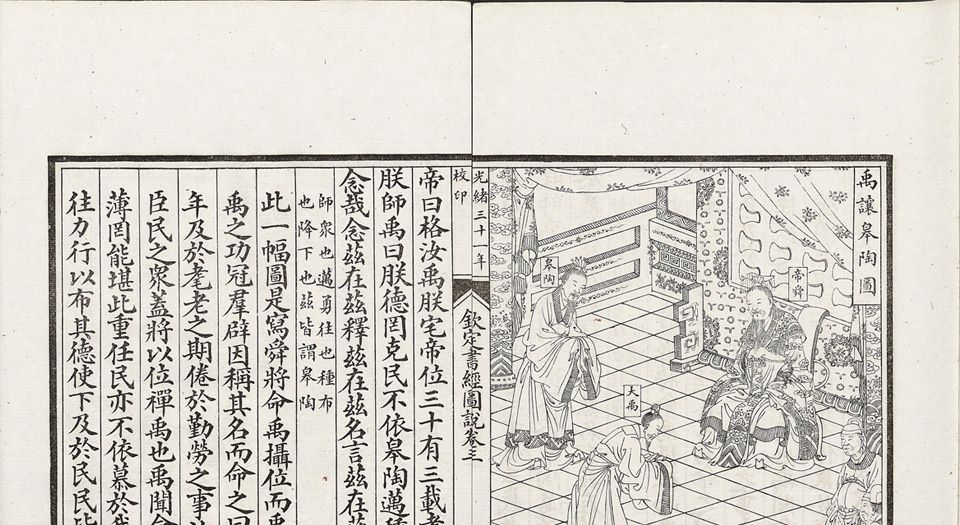 禹讓皋陶圖
帝舜
大禹
皋陶
光緒三十一年
校印
欽定書經圖說卷三
帝曰格汝禹朕宅帝位三十有三載耄
朕師禹曰朕德罔克民不依皋陶邁種
念哉念茲在茲釋茲在茲名言茲在茲
師眾也邁勇往也種布
也降下也茲皆謂皋陶
此一幅圖是寫舜將命禹攝位而禹
禹之功冠羣辟因稱其名而命之曰
年及於耄老之期倦於勤勞之事
臣民之眾蓋將以位禪禹也禹聞命
薄罔能堪此重任民亦不依慕於我
往力行以布其德使下及於民民皆